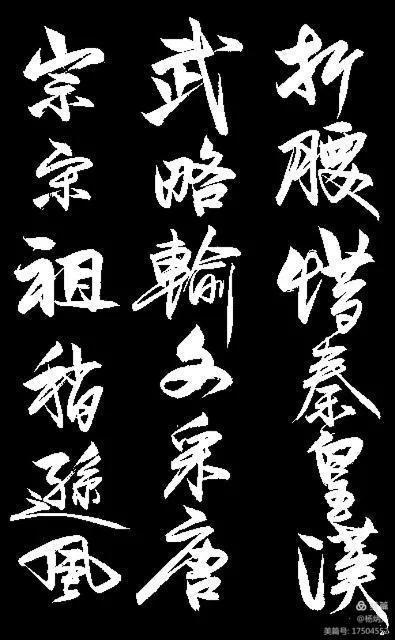 折腰惜秦皇漢
武略輸文采唐
宗宋祖稍遜風
美篇
@杨
美篇号: